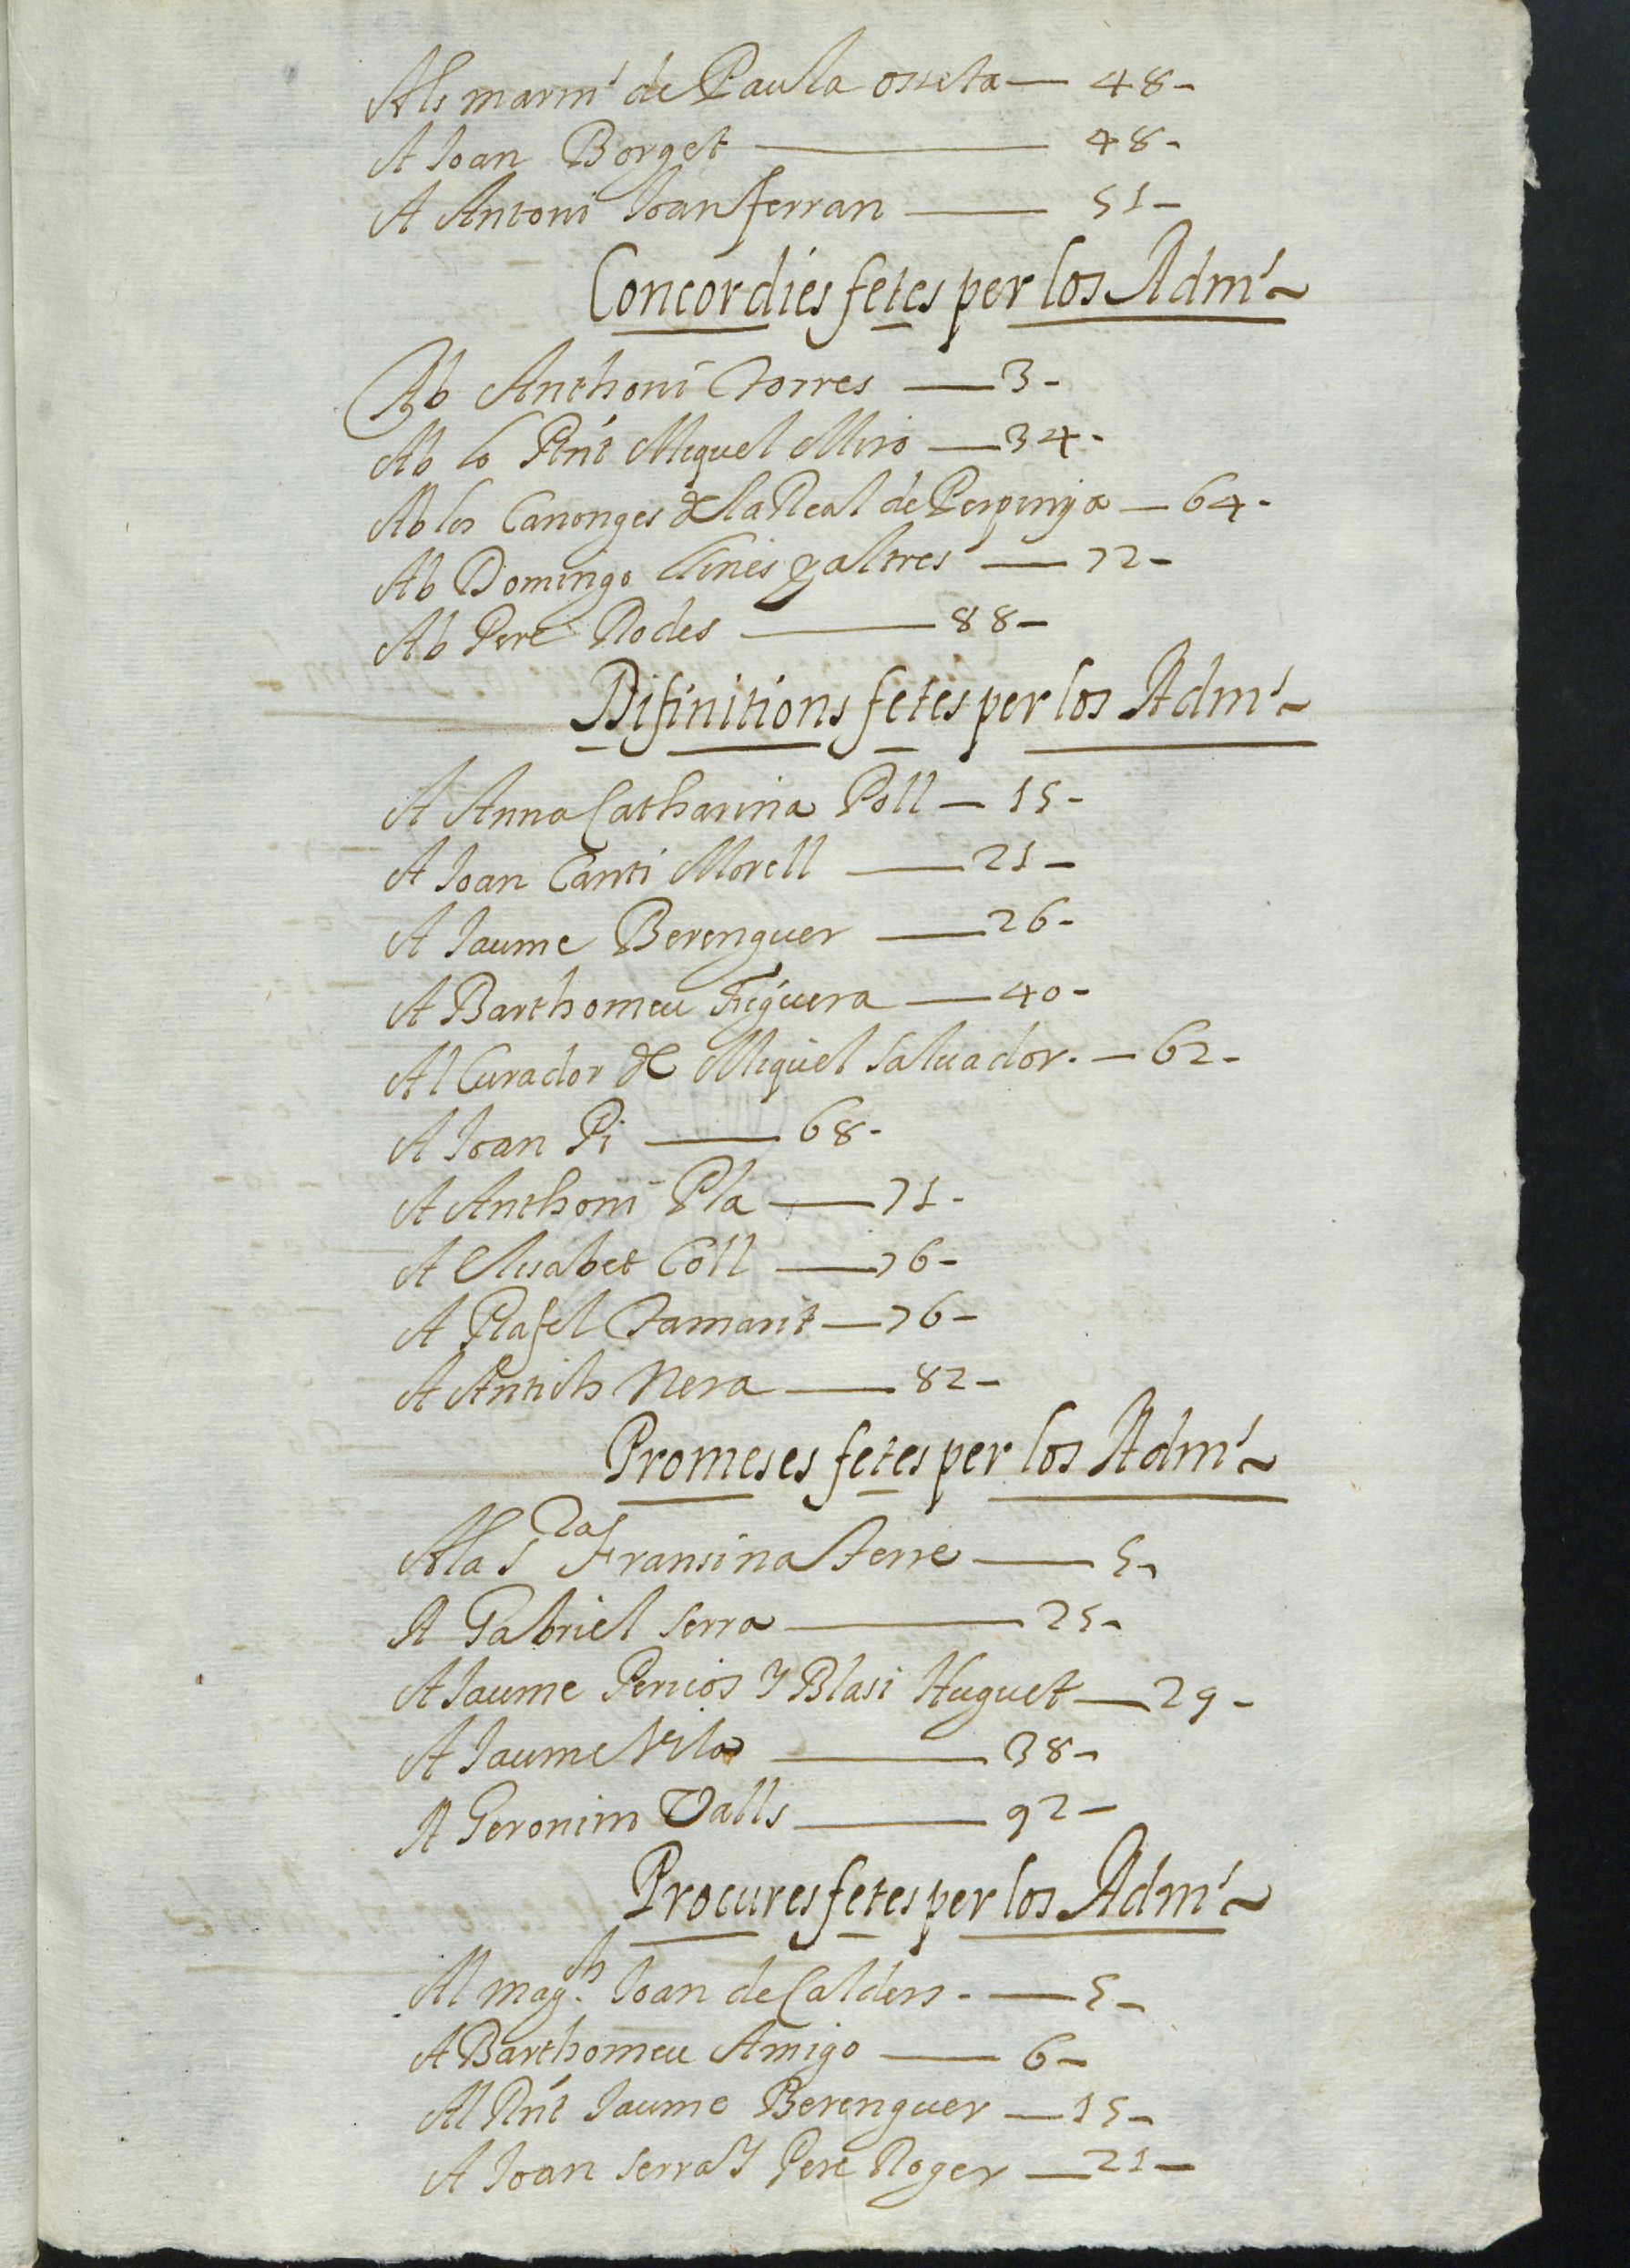 Als marm.ˢ de Paula osseta — 48 -
A Joan Borget — 48 -
A Antoni Joan ferran — 51 -
Concordies fetes per los Adm.ˢ ~
Ab Anthoni Torres — 3 -
Ab lo Rnt Miquel Miro — 34 -
Ab los Canonges de la Real de Perpinya — 64 -
Ab Domingo Llines y altres — 72 -
Ab Pere Rodes — 88 -
Difinitions fetes per los Adm.ˢ ~
A Anna Catharina Poll — 15 -
A Joan Canti Morell — 21 -
A Jaume Berenguer — 26 -
A Barthomeu Figuera — 40 -
Al Curador de Miquel Saluador. — 62 -
A Joan Pi — 68 -
A Anthoni Pla — 71 -
A Elisabet Coll — 76 -
A Rafel Tamarit — 76 -
A Antich Nera — 82 -
Promeses fetes per los Adm.ˢ ~
A la Sra Fransina ferre — 5 -
A Gabriel Serra — 25 -
A Jaume Y Blasi Huguet — 29 -
A Jaume Vila — 38 -
A Geronim Valls — 92 -
Procures fetes per los Adm.ˢ ~
Al mag.ch Joan de Calders - — 5 -
A Barthomeu Amigo — 6 -
Al Rnt Jaume Berenguer — 15 -
A Joan Serra Y Pere Roger — 21 -